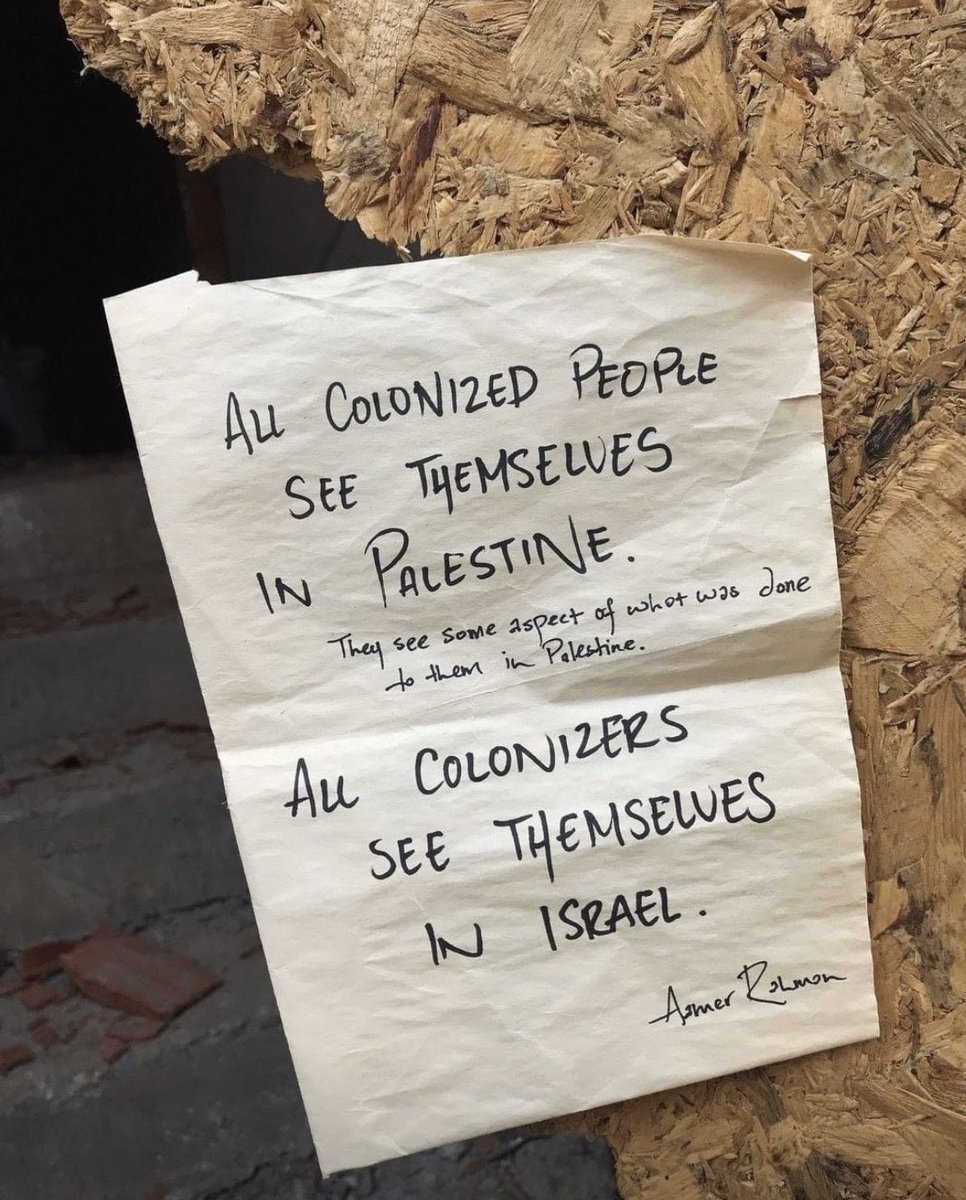 ALL COLONIZED PEOPLE
SEE THEMSELVES
IN PALESTINE.
They see some aspect of what was done
to them in Palestine.
ALL COLONIZERS
SEE THEMSELVES
IN ISRAEL.
Asmer Rahman